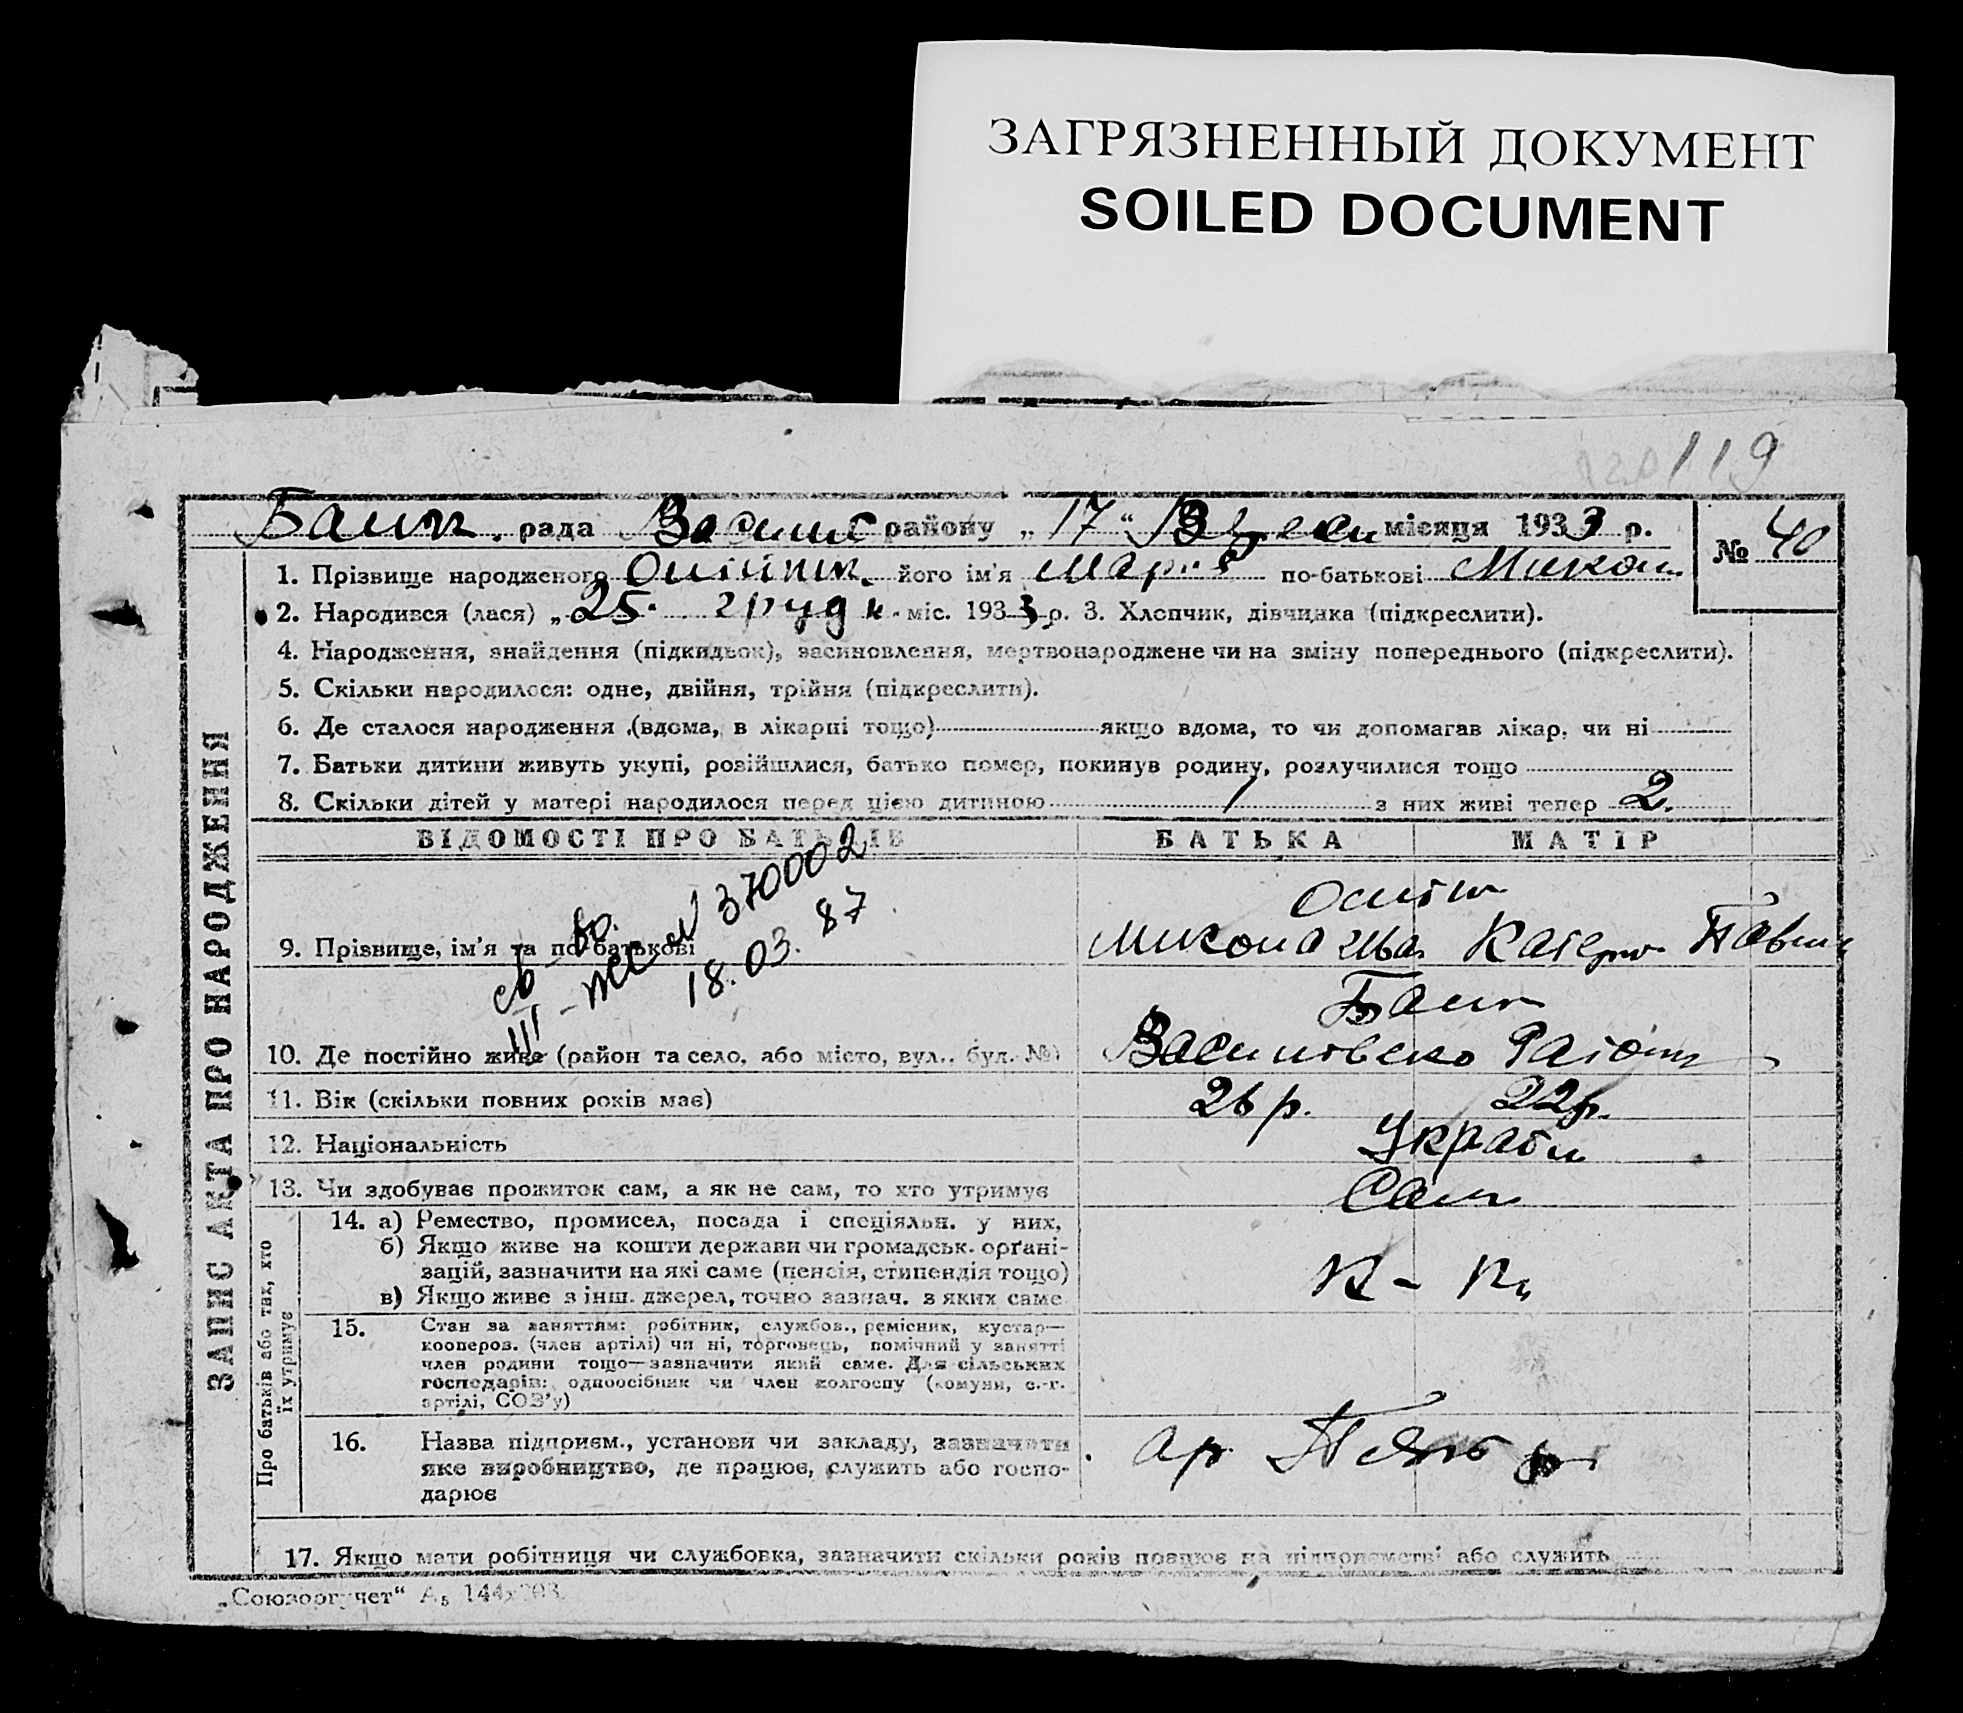 ЗАГРЯЗНЕННЫЙ ДОКУМЕНТ
SOILED DOCUMENT
119
рада району „17“ місяця 1933 р.
№ 40
1. Прізвище народженого його ім'я Марія по-батькові Микол.
2. Народився (лася) „25. грудн. міс. 1933 р. 3. Хлопчик, дівчинка (підкреслити).
4. Народження, знайдення (підкидьок), засиновлення, мертвонароджене чи на зміну попереднього (підкреслити).
5. Скільки народилося: одне, двійня, трійня (підкреслити).
6. Де сталося народження (вдома, в лікарні тощо) якщо вдома, то чи допомагав лікар, чи ні
7. Батьки дитини живуть укупі, розійшлися, батько помер, покинув родину, розлучилися тощо
8. Скільки дітей у матері народилося перед цією дитиною 1 з них живі тепер 2.
ЗАПИС АКТА ПРО НАРОДЖЕННЯ
ВІДОМОСТІ ПРО БАТЬКІВ БАТЬКА МАТІР
св-во.
III-ЖС № 370002
18.03.87
9. Прізвище, ім'я та по батькові Микола Катер Павл
10. Де постійно живе (район та село, або місто, вул., буд. №)
11. Вік (скільки повних років має) 26 р. 22 р.
12. Національність Україн
13. Чи здобуває прожиток сам, а як не сам, то хто утримує Сами
Про батьків або тих, хто їх утримує
14. а) Ремество, промисел, посада і спеціяльн. у них.
б) Якщо живе на кошти держави чи громадськ. орґані-
зацій, зазначити на які саме (пенсія, стипендія тощо)
в) Якщо живе з інш. джерел, точно зазнач. з яких саме
К-ки
15. Стан за заняттям: робітник, службов., ремісник, кустар—
коопероз. (член артілі) чи ні, торговець, помічний у занятті
член родини тощо—зазначити який саме. Для сільських
господарів: одноосібник чи член колгоспу (комуни, с.-г.
артілі, СОЗ'у)
16. Назва підприєм., установи чи закладу, зазначити
яке виробництво, де працює, служить або госпо-
дарює
ар.
17. Якщо мати робітниця чи службовка, зазначити скільки років працює на підприємстві або служить
„Союзоргучет“